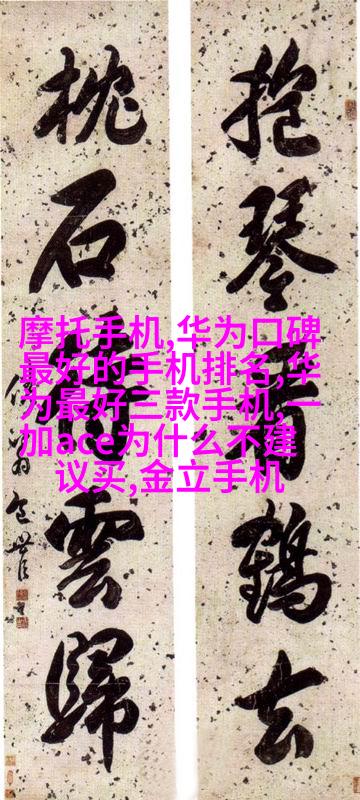 抱琴看鶴去
枕石待雲歸
倦翁包世臣
摩托手机,华为口碑
最好的手机排名,华
为最好三款手机,一
加ace为什么不建
议买,金立手机